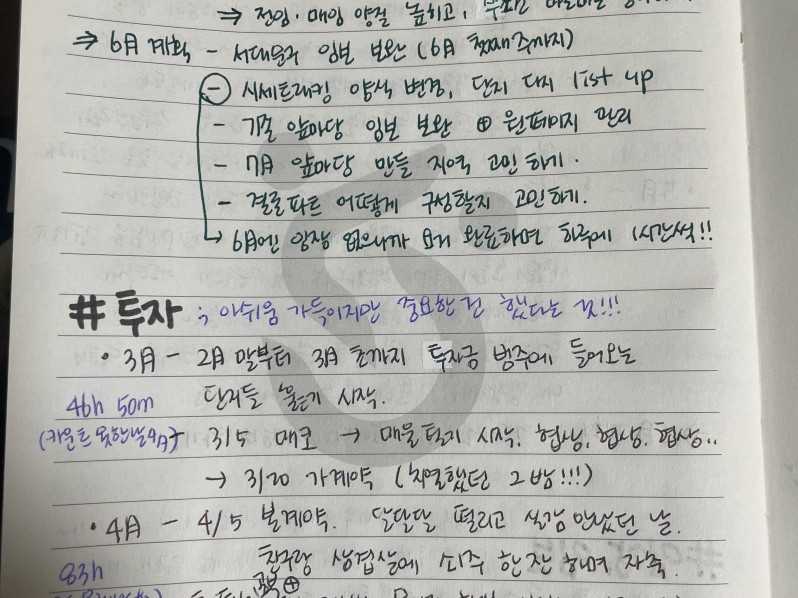 ⇒ 전임·매임 양질 높히고,
⇒ 6月 계획 - 서대문구 임보 보완 (6月 첫째주까지)
- 시세트래킹 양식 변경, 단지 다시 list up
- 기존 앞마당 임보 보완 ⊕ 원페이지 관리
- 7月 앞마당 만들 지역 고민하기.
- 결론파트 어떻게 구성할지 고민하기.
↳ 6月엔 임장 없으니까 요거 완료하면 하루에 1시간씩!!
# 투자 ; 아쉬움 가득이지만 중요한건 했다는 것!!!
• 3月 - 2月 말부터 3月 초까지 투자금 범주에 들어오는
46h 50m 단지들 보기 시작.
(카운트 못한날 多) - 3/5 매코 → 매물털기 시작. 협상, 협상, 협상..
→ 3/20 가계약 (치열했던 그 밤!!!)
• 4月 - 4/5 본계약. 달달달 떨리고 실감 안났던 날.
83h 친구랑 삼겹살에 쇠주 한잔 하며 자축.